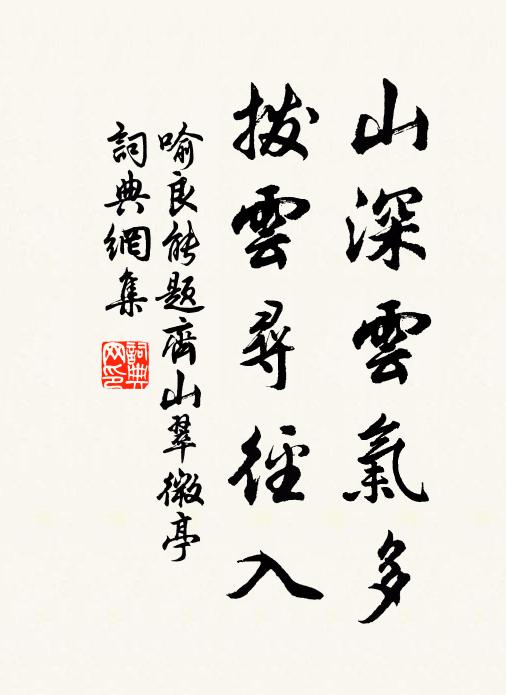 山深雲氣多
撥雲尋徑入
喻良能題齊山翠微亭
詞典網集
詞典網印